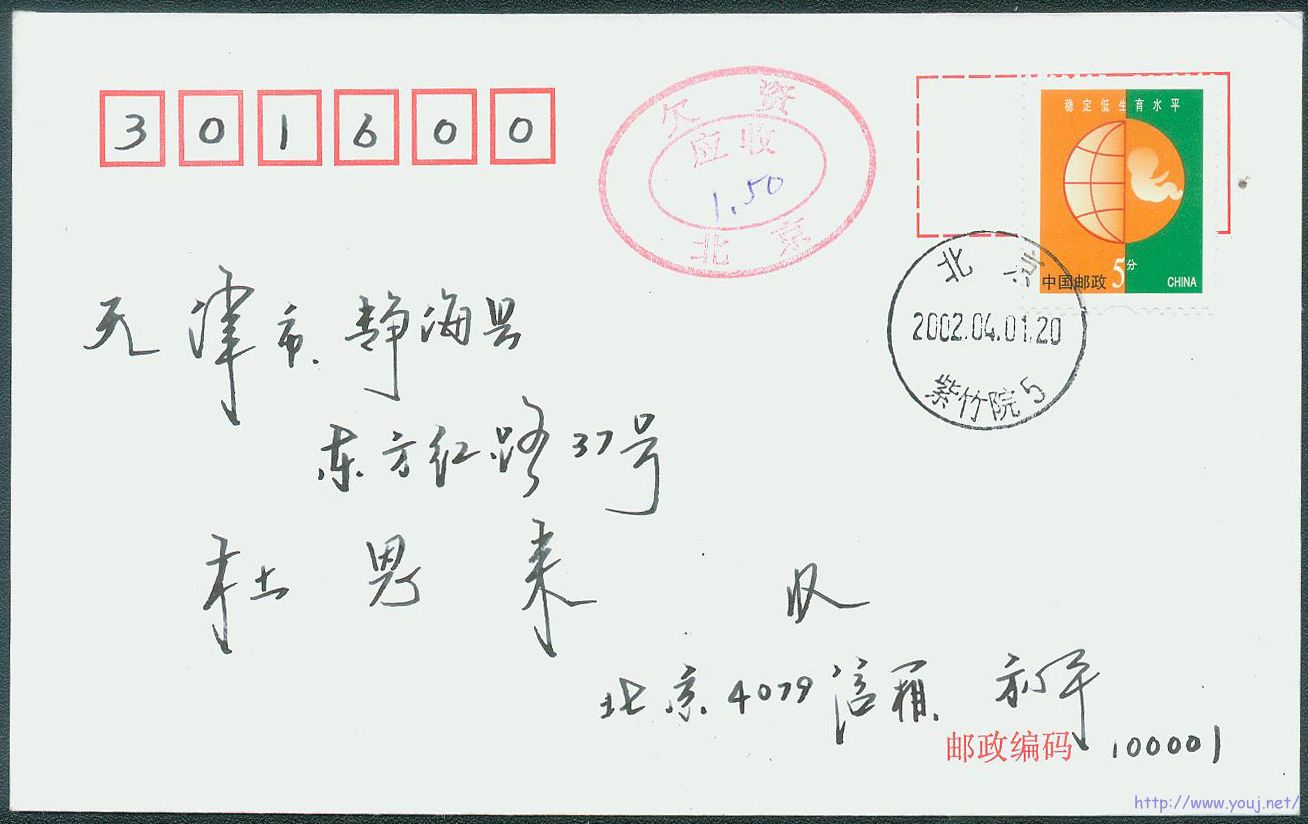 301600
欠资
应收
1.50
北京
稳定低生育水平
中国邮政 5分 CHINA
北京
2002.04.01.20
紫竹院5
天津市.静海县
东方红路37号
杜 恩 来 收
北京.4079信箱.
邮政编码 100001
http://www.youj.net/